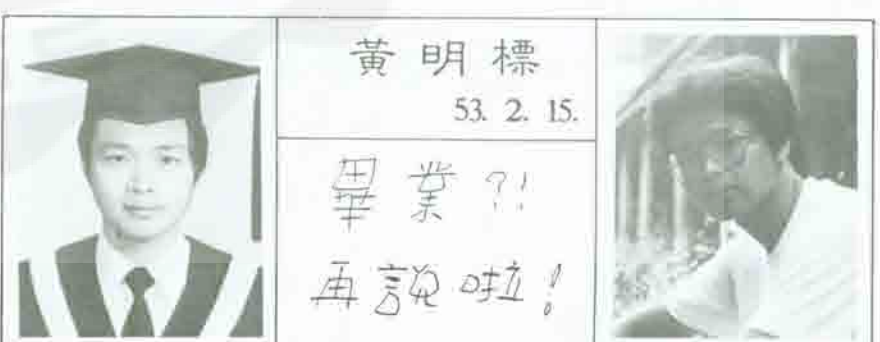 黃明標
53. 2. 15.
畢業?!
再說啦!